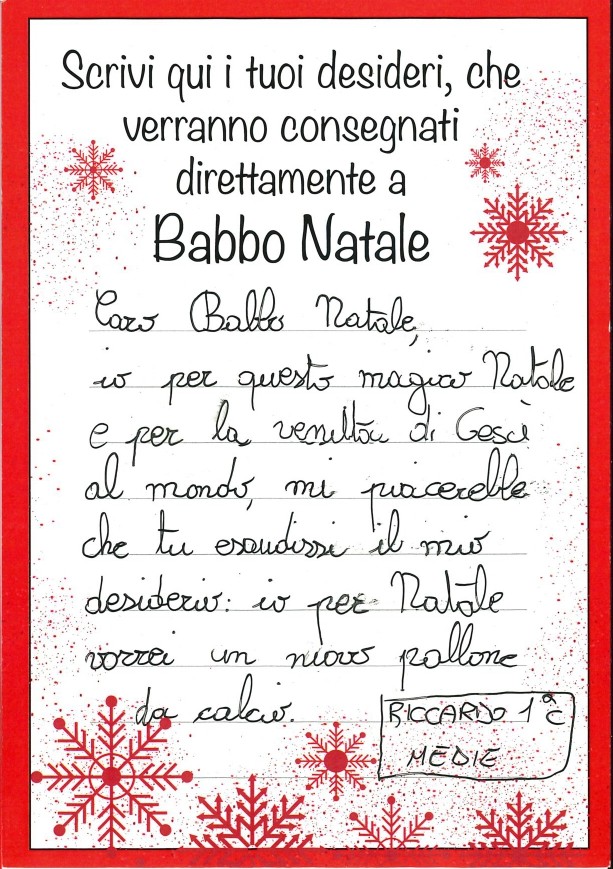 Scrivi qui i tuoi desideri, che
verranno consegnati
direttamente a
Babbo Natale
Caro Babbo Natale,
io per questo magico Natale
e per la venutta di Gesù
al mondo, mi piacerebbe
che tu esaudissi il mio
desiderio: io per Natale
vorrei un nuovo pallone
da calcio.
RICCARDO 1ªC
MEDIE